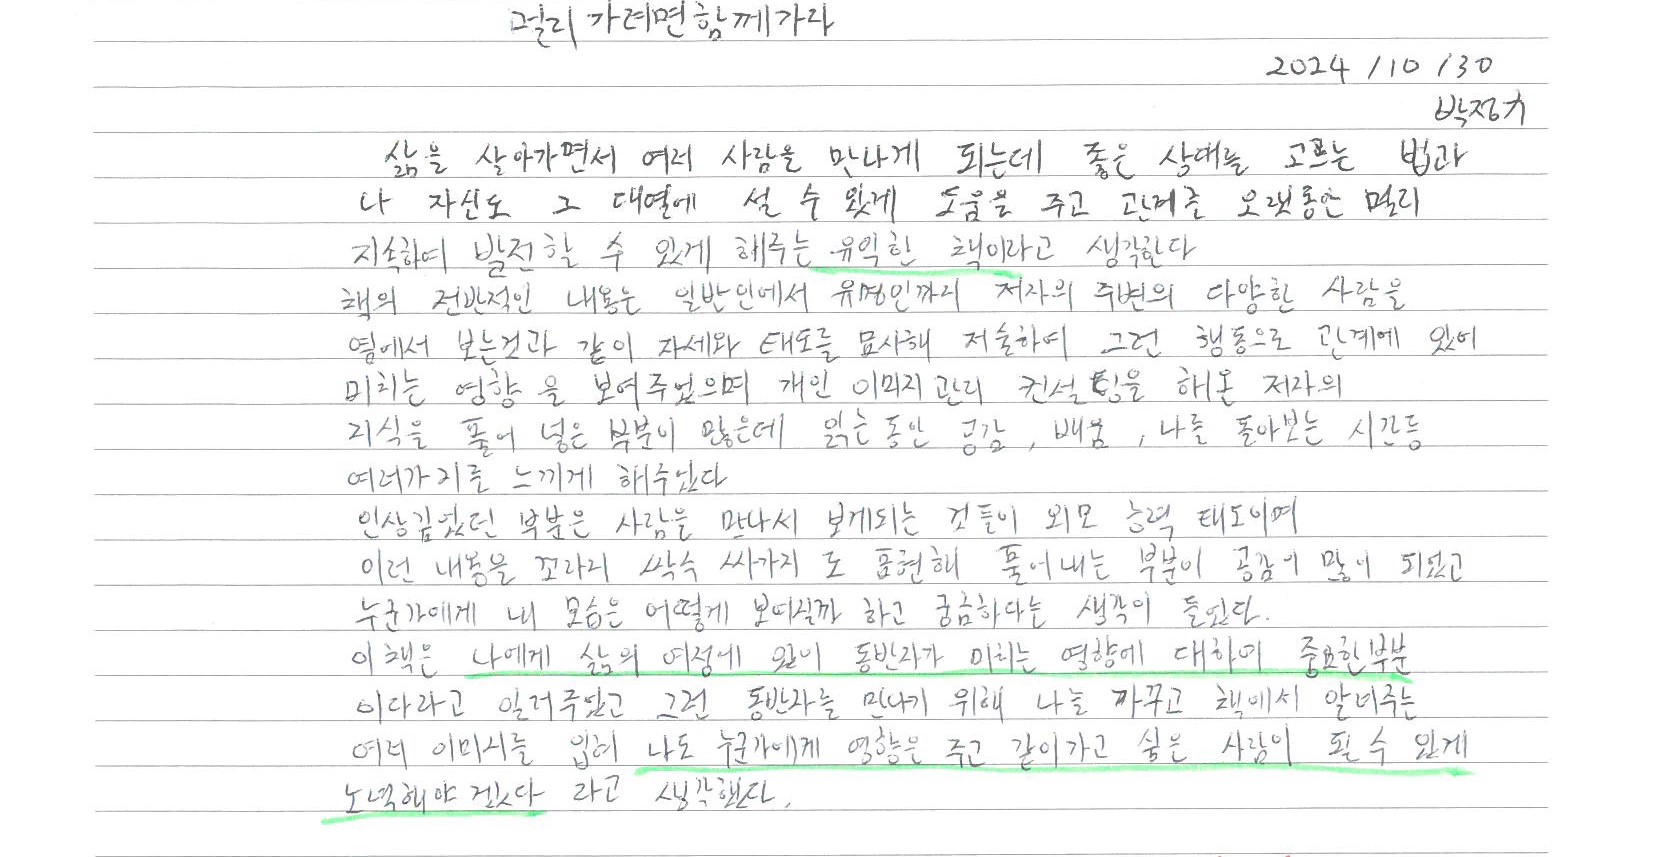 멀리 가려면 함께가라
2024 / 10 / 30
삶을 살아가면서 여러 사람을 만나게 되는데 좋은 상대를 고르는 법과
나 자신도 그 대열에 설 수 있게 도움을 주고 관계를 오랫동안 멀리
지속하여 발전할 수 있게 해주는 유익한 책이라고 생각한다
책의 전반적인 내용은 일반인에서 유명인까지 저자의 주변의 다양한 사람을
옆에서 보는것과 같이 자세와 태도를 묘사해 저술하여 그런 행동으로 관계에 있어
미치는 영향 을 보여주었으며 개인 이미지 관리 컨설팅을 해온 저자의
지식을 풀어 넣은 부분이 많은데 읽는 동안 공감, 배움, 나를 돌아보는 시간등
여러가지를 느끼게 해주었다
인상깊었던 부분은 사람을 만나서 보게되는 것들이 외모 능력 태도이며
이런 내용을 꼬라지 싹수 싸가지 로 표현해 풀어내는 부분이 공감이 많이 되었고
누군가에게 내 모습은 어떻게 보여질까 하고 궁금하다는 생각이 들었다.
이 책은 나에게 삶의 여정에 있어 동반자가 미치는 영향에 대하여 중요한부분
이다라고 일러주었고 그런 동반자를 만나기 위해 나를 까꾸고 책에서 알려주는
여러 이미지를 입혀 나도 누군가에게 영향을 주고 같이가고 싶은 사람이 될 수 있게
노력해야 겠다 라고 생각했다.